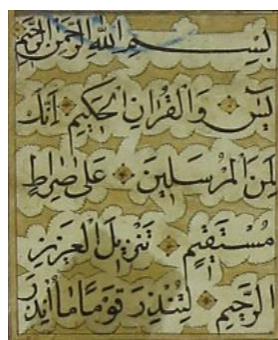 بسم الله الرحمن الرحيم
يس والقران الحكيم انك
لمن المرسلين على صراط
مستقيم تنزيل العزيز
الرحيم لتنذر قوما ما انذر